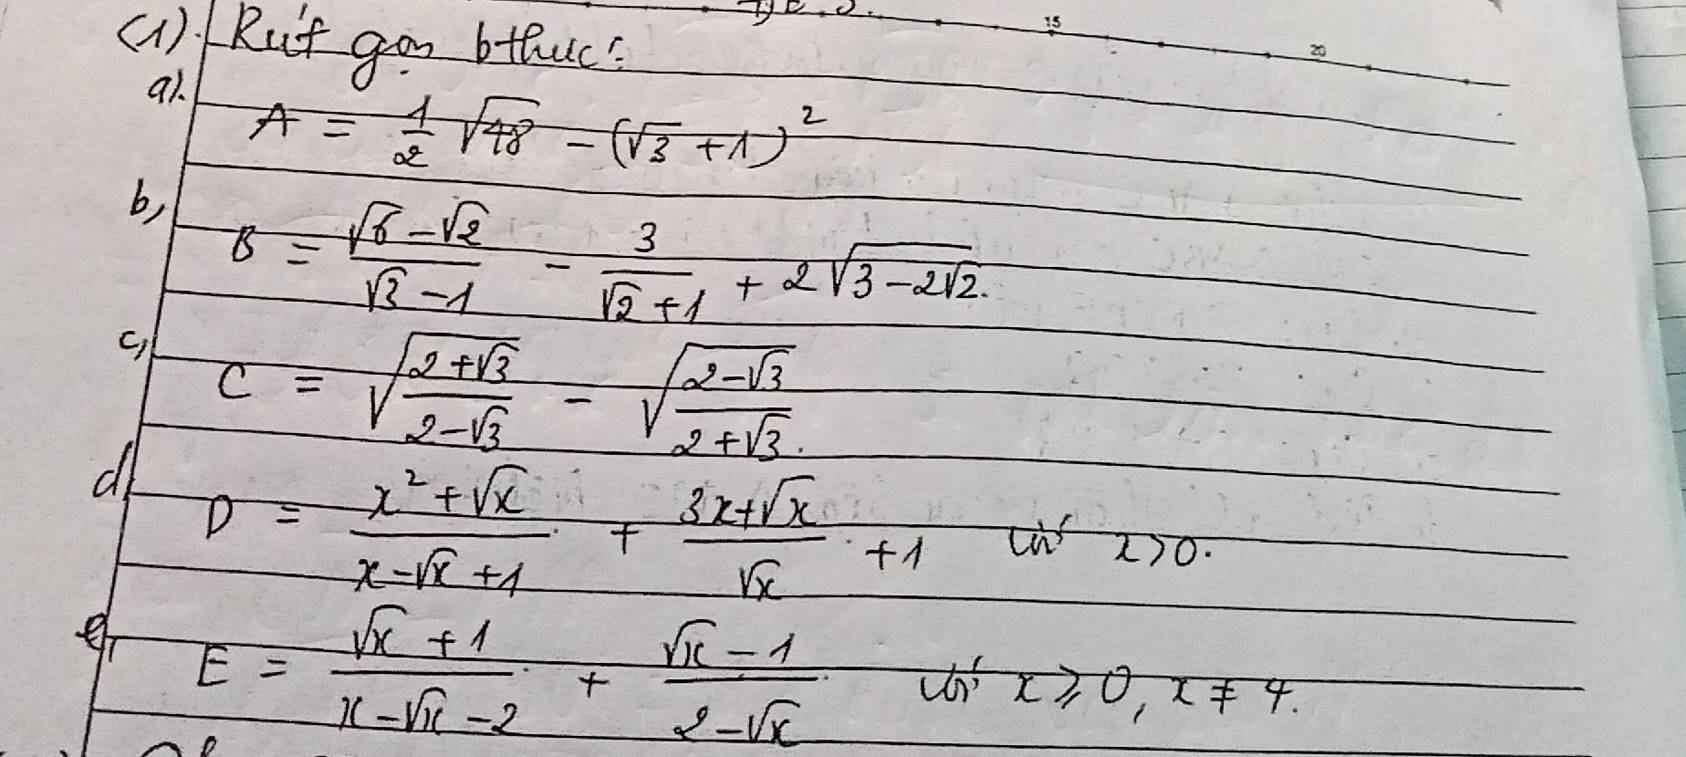 15 20
(1). Rút gọn bthuc:
a). A = \frac{1}{2} \sqrt{48} - (\sqrt{3} + 1)^2
b, B = \frac{\sqrt{6} - \sqrt{2}}{\sqrt{3} - 1} - \frac{3}{\sqrt{2} + 1} + 2\sqrt{3 - 2\sqrt{2}}.
c, C = \sqrt{\frac{2 + \sqrt{3}}{2 - \sqrt{3}}} - \sqrt{\frac{2 - \sqrt{3}}{2 + \sqrt{3}}}.
d, D = \frac{x^2 + \sqrt{x}}{x - \sqrt{x} + 1} + \frac{3x + \sqrt{x}}{\sqrt{x}} + 1 với x > 0.
e, E = \frac{\sqrt{x} + 1}{x - \sqrt{x} - 2} + \frac{\sqrt{x} - 1}{2 - \sqrt{x}} với x ⩾ 0, x ≠ 4.